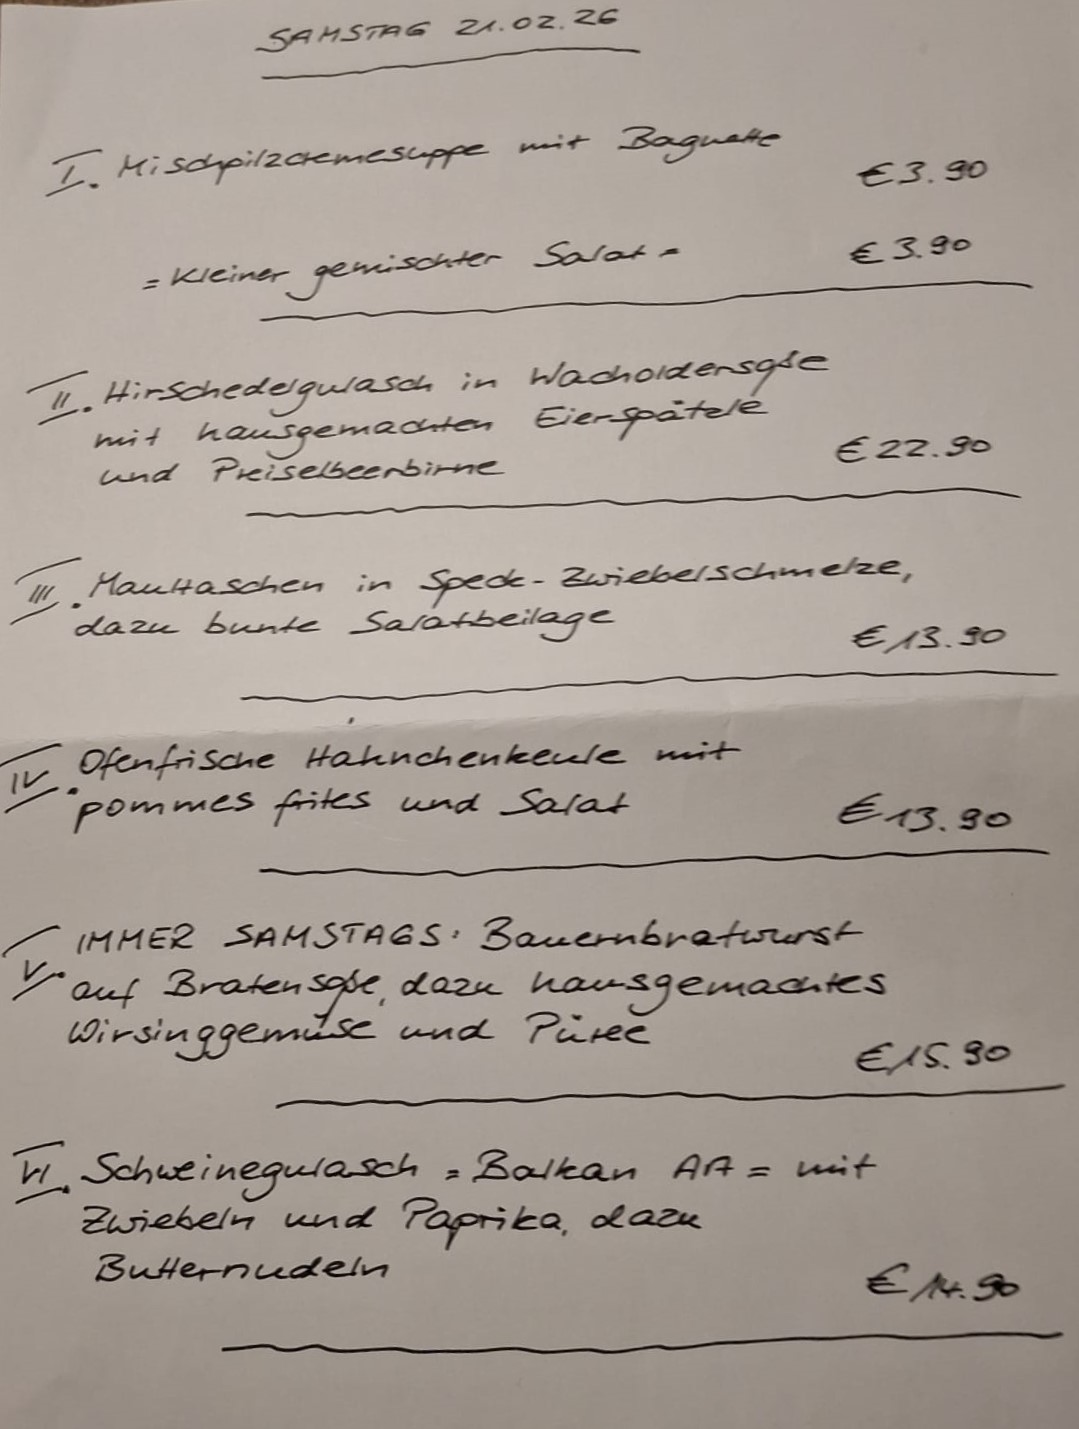 SAMSTAG 21.02.26
I. Mischpilzcremesuppe mit Baguette
€ 3.90
= Kleiner gemischter Salat = € 3.90
II. Hirschedelgulasch in Wacholdersoße
mit hausgemachten Eierspätzle
und Preiselbeerbirne € 22.90
III. Maultaschen in Speck-Zwiebelschmelze,
dazu bunte Salatbeilage
€ 13.90
IV. Ofenfrische Hähnchenkeule mit
pommes frites und Salat € 13.90
V. IMMER SAMSTAGS: Bauernbratwurst
auf Bratensoße, dazu hausgemachtes
Wirsinggemüse und Püree
€ 15.90
VI. Schweinegulasch = Balkan Art = mit
Zwiebeln und Paprika, dazu
Butternudeln
€ 14.90